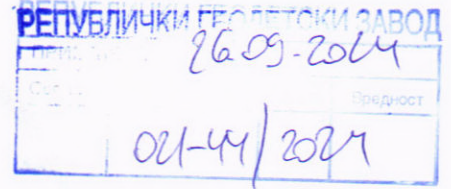 РЕПУБЛИЧКИ ГЕОДЕТСКИ ЗАВОД
26.09.2024
Вредност
021-44/2024